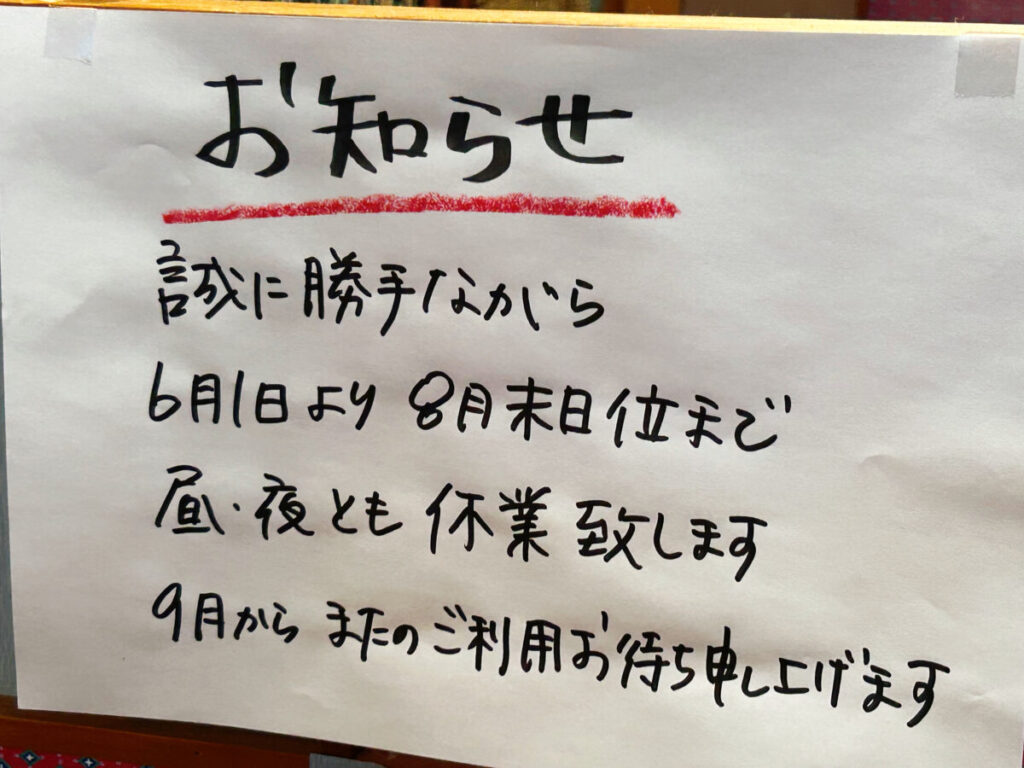 お知らせ
誠に勝手ながら
6月1日より 8月末日位まで
昼・夜とも 休業 致します
9月から またのご利用お待ち申し上げます